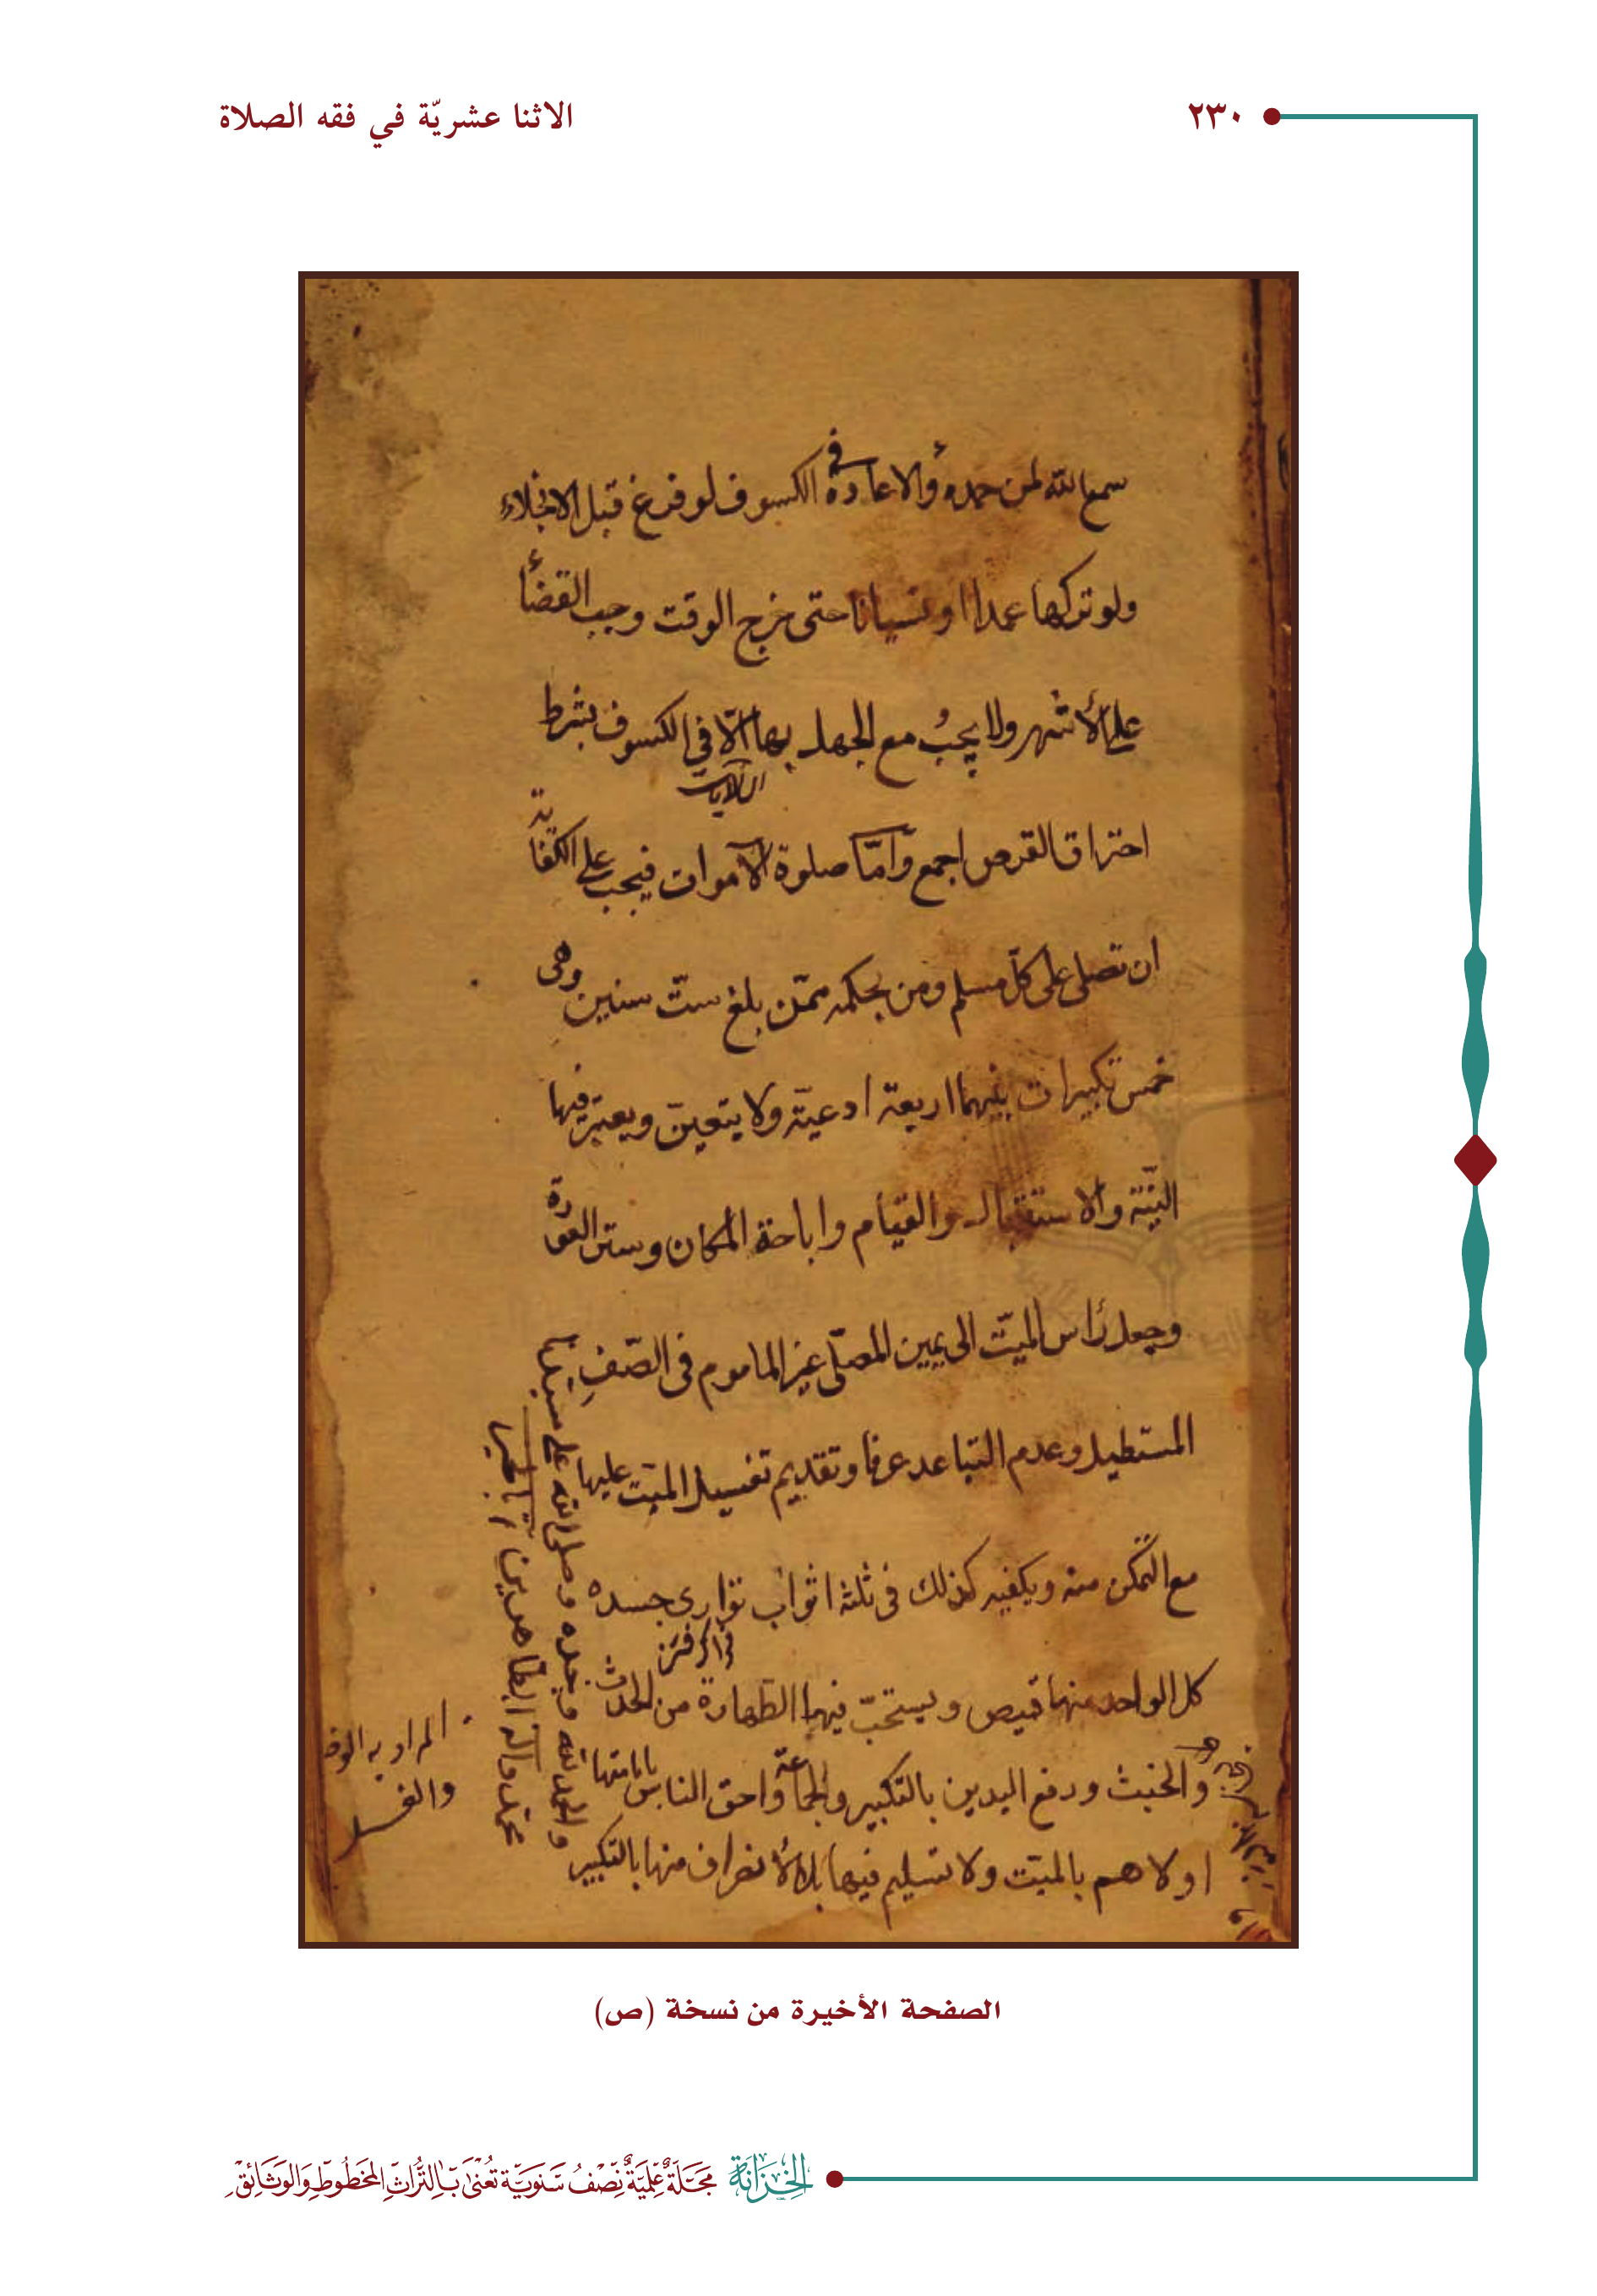 ٢٣٠
الاثنا عشريّة في فقه الصلاة
سمع الله لمن حمده والاعادة في الكسوف لو فرغ قبل الانجلاء
ولو تركها عمدا او نسيانا حتى خرج الوقت وجب القضأ
على الأشهر ولا يجبُ مع الجهل بها الّا في الكسوف بشرط
احتراق القرص اجمع وامّا صلوة الاموات فيجب على الكفاية
ان تصلى على كلّ مسلم ومن بحكمه ممّن بلغ ستّ سنين وهى
خمس تكبيرات بينهما اربعة ادعيّة ولا يتعيّن ويعتبر فيها
النيّة والاستقبال والقيام واباحة المكان وستر العورة
وجعل رأس الميّت الى يمين المصلّى غير الماموم فى الصّفِ
المستطيل وعدم التباعد عرفا وتقديم تغسيل الميّت عليها
مع التمكن منه وتكفينه كذلك فى ثلثة اثواب توارى جسده
كل الواحد منها قميص ويستحبّ فيها الطهارة من الحدث
والخبث ورفع اليدين بالتكبير والجماعة واحق الناس بامامتها
اولاهم بالميّت ولا تسليم فيها بل الأنصراف منها بالتكبير
والحمد لله وحده وصلى الله على
محمد واله الطاهرين
المراد به الوضو
والغسل
الصفحة الأخيرة من نسخة (ص)
الخزانة مجلة علمية نصف سنوية تعنى بالتراث المخطوط والوثائق